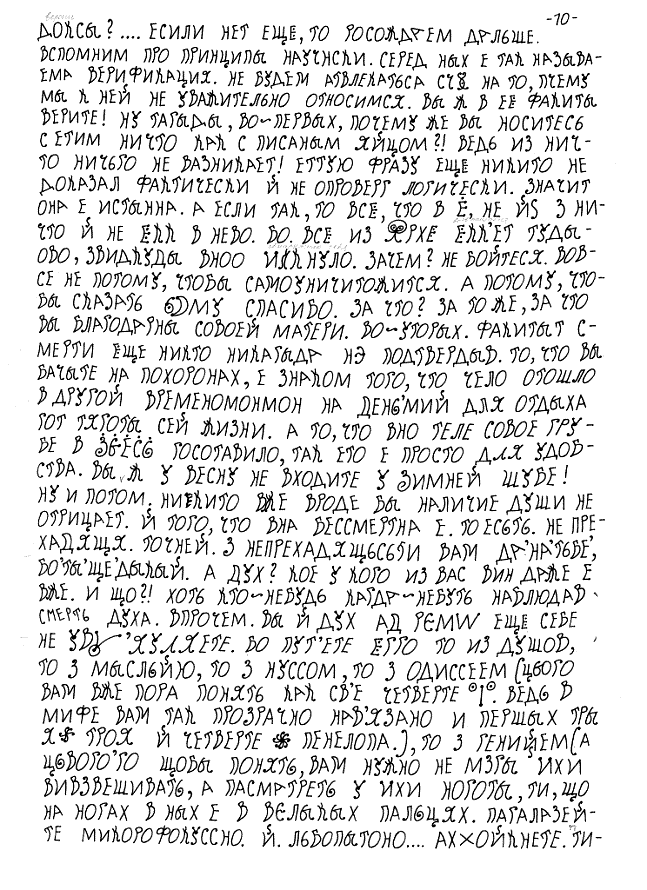 -10-
ДОКСЫ?.... ЕСИЛИ НЕТ ЕЩЕ, ТО РОСОЖДАЕМ ДАЛЬШЕ.
ВСПОМНИМ ПРО ПРИНЦИПЫ НАУЧНСКИ. СЕРЕД НЫХ Е ТАК НАЗЫВА-
ЕМА ВЕРИФИКАЦИЯ. НЕ БУДЕМ АТВЛЕКАТЬСА НА ТО, ПЧЕМУ
МЫ К НЕЙ НЕ УВАЖИТЕЛЬНО ОТНОСИМСЯ. ВЫ Ж В ЕЕ ФАКИТЫ
ВЕРИТЕ! НУ ТАГЫДЫ, ВО-ПЕРВЫХ, ПОЧЕМУ ЖЕ ВЫ НОСИТЕСЬ
С ЕТИМ НИЧТО КАК С ПИСАНЫМ ЯЙЦОМ?! ВЕДЬ ИЗ НИЧ-
ТО НИЧЬТО НЕ ВАЗНИКАЕТ! ЕТТУЮ ФРАЗУ ЕЩЕ НИКИТО НЕ
ДОКАЗАЛ ФАКТИЧЕСКИ Й НЕ ОПРОВЕРГ ЛОГИЧЕСКИ. ЗНАЧИТ
ОНА Е ИСТЫННА. А ЕСЛИ ТАК, ТО ВСЕ, ЧТО В Е, НЕ ЙЗ З НИ-
ЧТО Й НЕ В НЕВО. ВО ВСЕ ИЗ ТУДЫ-
ОВО, ЗВИДКУДЫ ВНОО ЗАЧЕМ? НЕ БОЙТЕСЯ. ВОВ-
СЕ НЕ ПОТОМУ, ЧТОБЫ САМОУНИЧИТОЖИТСЯ. А ПОТОМУ, ЧТО-
БЫ СКАЗАТЬ СПАСИБО. ЗА ЧТО? ЗА ТО ЖЕ, ЗА ЧТО
ВЫ БЛАГОДАРНЫ СОВОЕЙ МАТЕРИ. ВО-УТОРЫХ. ФАКИТЫТ С-
МЕРТИ ЕЩЕ НИКТО НИКАГЫДА НЭ ПОДТВЕРДЫВ. ТО, ЧТО ВЫ
БАЧЫТЕ НА ПОХОРОНАХ, Е ЗНАКОМ ТОГО, ЧТО ЧЕЛО ОТОШЛО
В ДРУГОЙ ВРЕМЕНОМОНМОН НА ДЕНЬ'МИЙ ДЛЯ ОТДЫХА
ТОТ ТЯГОТЫ СЕЙ ЖИЗНИ. А ТО, ЧТО ВНО ТЕЛЕ СОВОЕ ГРУ-
БЕ В ЗДЕСЬ ТОСОТАВИЛО, ТАК ЕТО Е ПРОСТО ДЛЯ УДОВ-
СТВА. ВЫ Ж У ВЕСНУ НЕ ВХОДИТЕ У ЗИМНЕЙ ШУБЕ!
НУ И ПОТОМ. НИКИТО ВЖЕ ВРОДЕ БЫ НАЛИЧИЕ ДУШИ НЕ
ОТРИЦАЕТ. Й ТОГО, ЧТО ВНА БЕССМЕРТНА Е. ТО ЕСЬТЬ. НЕ ПРЕ-
ХАДЯЩЯ. ТОЧНЕЙ. З НЕПРЕХАДЯЩЬСЬТИ ВАМ ДА'НА'ТЬБЕ',
БО'ТЫ'ЩЕ'ДЫКЫЙ. А ДУХ? КОЕ У КОГО ИЗ ВАС ВИН ДАЖЕ Е
ВЖЕ. И ЩО?! ХОТЬ КТО-НЕБУДЬ КАГДА-НЕБУТЬ НАБЛЮДАВ
СМЕРТЬ ДУХА. ВПРОЧЕМ. ВЫ Й ДУХ АД ЕЩЕ СЕБЕ
НЕ БО ПУТ'ЕТЕ ЕГГО ТО ИЗ ДУШОВ,
ТО З МЫСЛЬЙЮ, ТО З НУССОМ, ТО З ОДИССЕЕМ (ЦЬОГО
ВАМ ВЖЕ ПОРА ПОНЯТЬ КАК СВ'Е ЧЕТВЕРТЕ °1°. ВЕДЬ В
МИФЕ ВАМ ТАК ПРОЗРАЧНО НАВ'ЯЗАНО И ПЕРШЫХ ТРЫ
ТРОЯ Й ЧЕТВЕРТЕ ПЕНЕЛОПА.), ТО З ГЕНИЙЕМ (А
ЦЬОВОГО'ГО ЩОБЫ ПОНЯТЬ, ВАМ НУЖНО НЕ МЗГЫ ИХИ
ВИВЗВЕШИВАТЬ, А ПАСМАТРЕТЬ У ИХИ НОГОТЫ, ТИ, ЩО
НА НОГАХ В НЫХ Е В ВЕЛЫКЫХ ПАЛЬЦЯХ. ПАГАЛАЗЕЙ-
ТЕ МИКОРОФОКУССНО. Й. ЛЬБОПЫТОНО.... АХ×ОЙКНЕТЕ. ТИ-